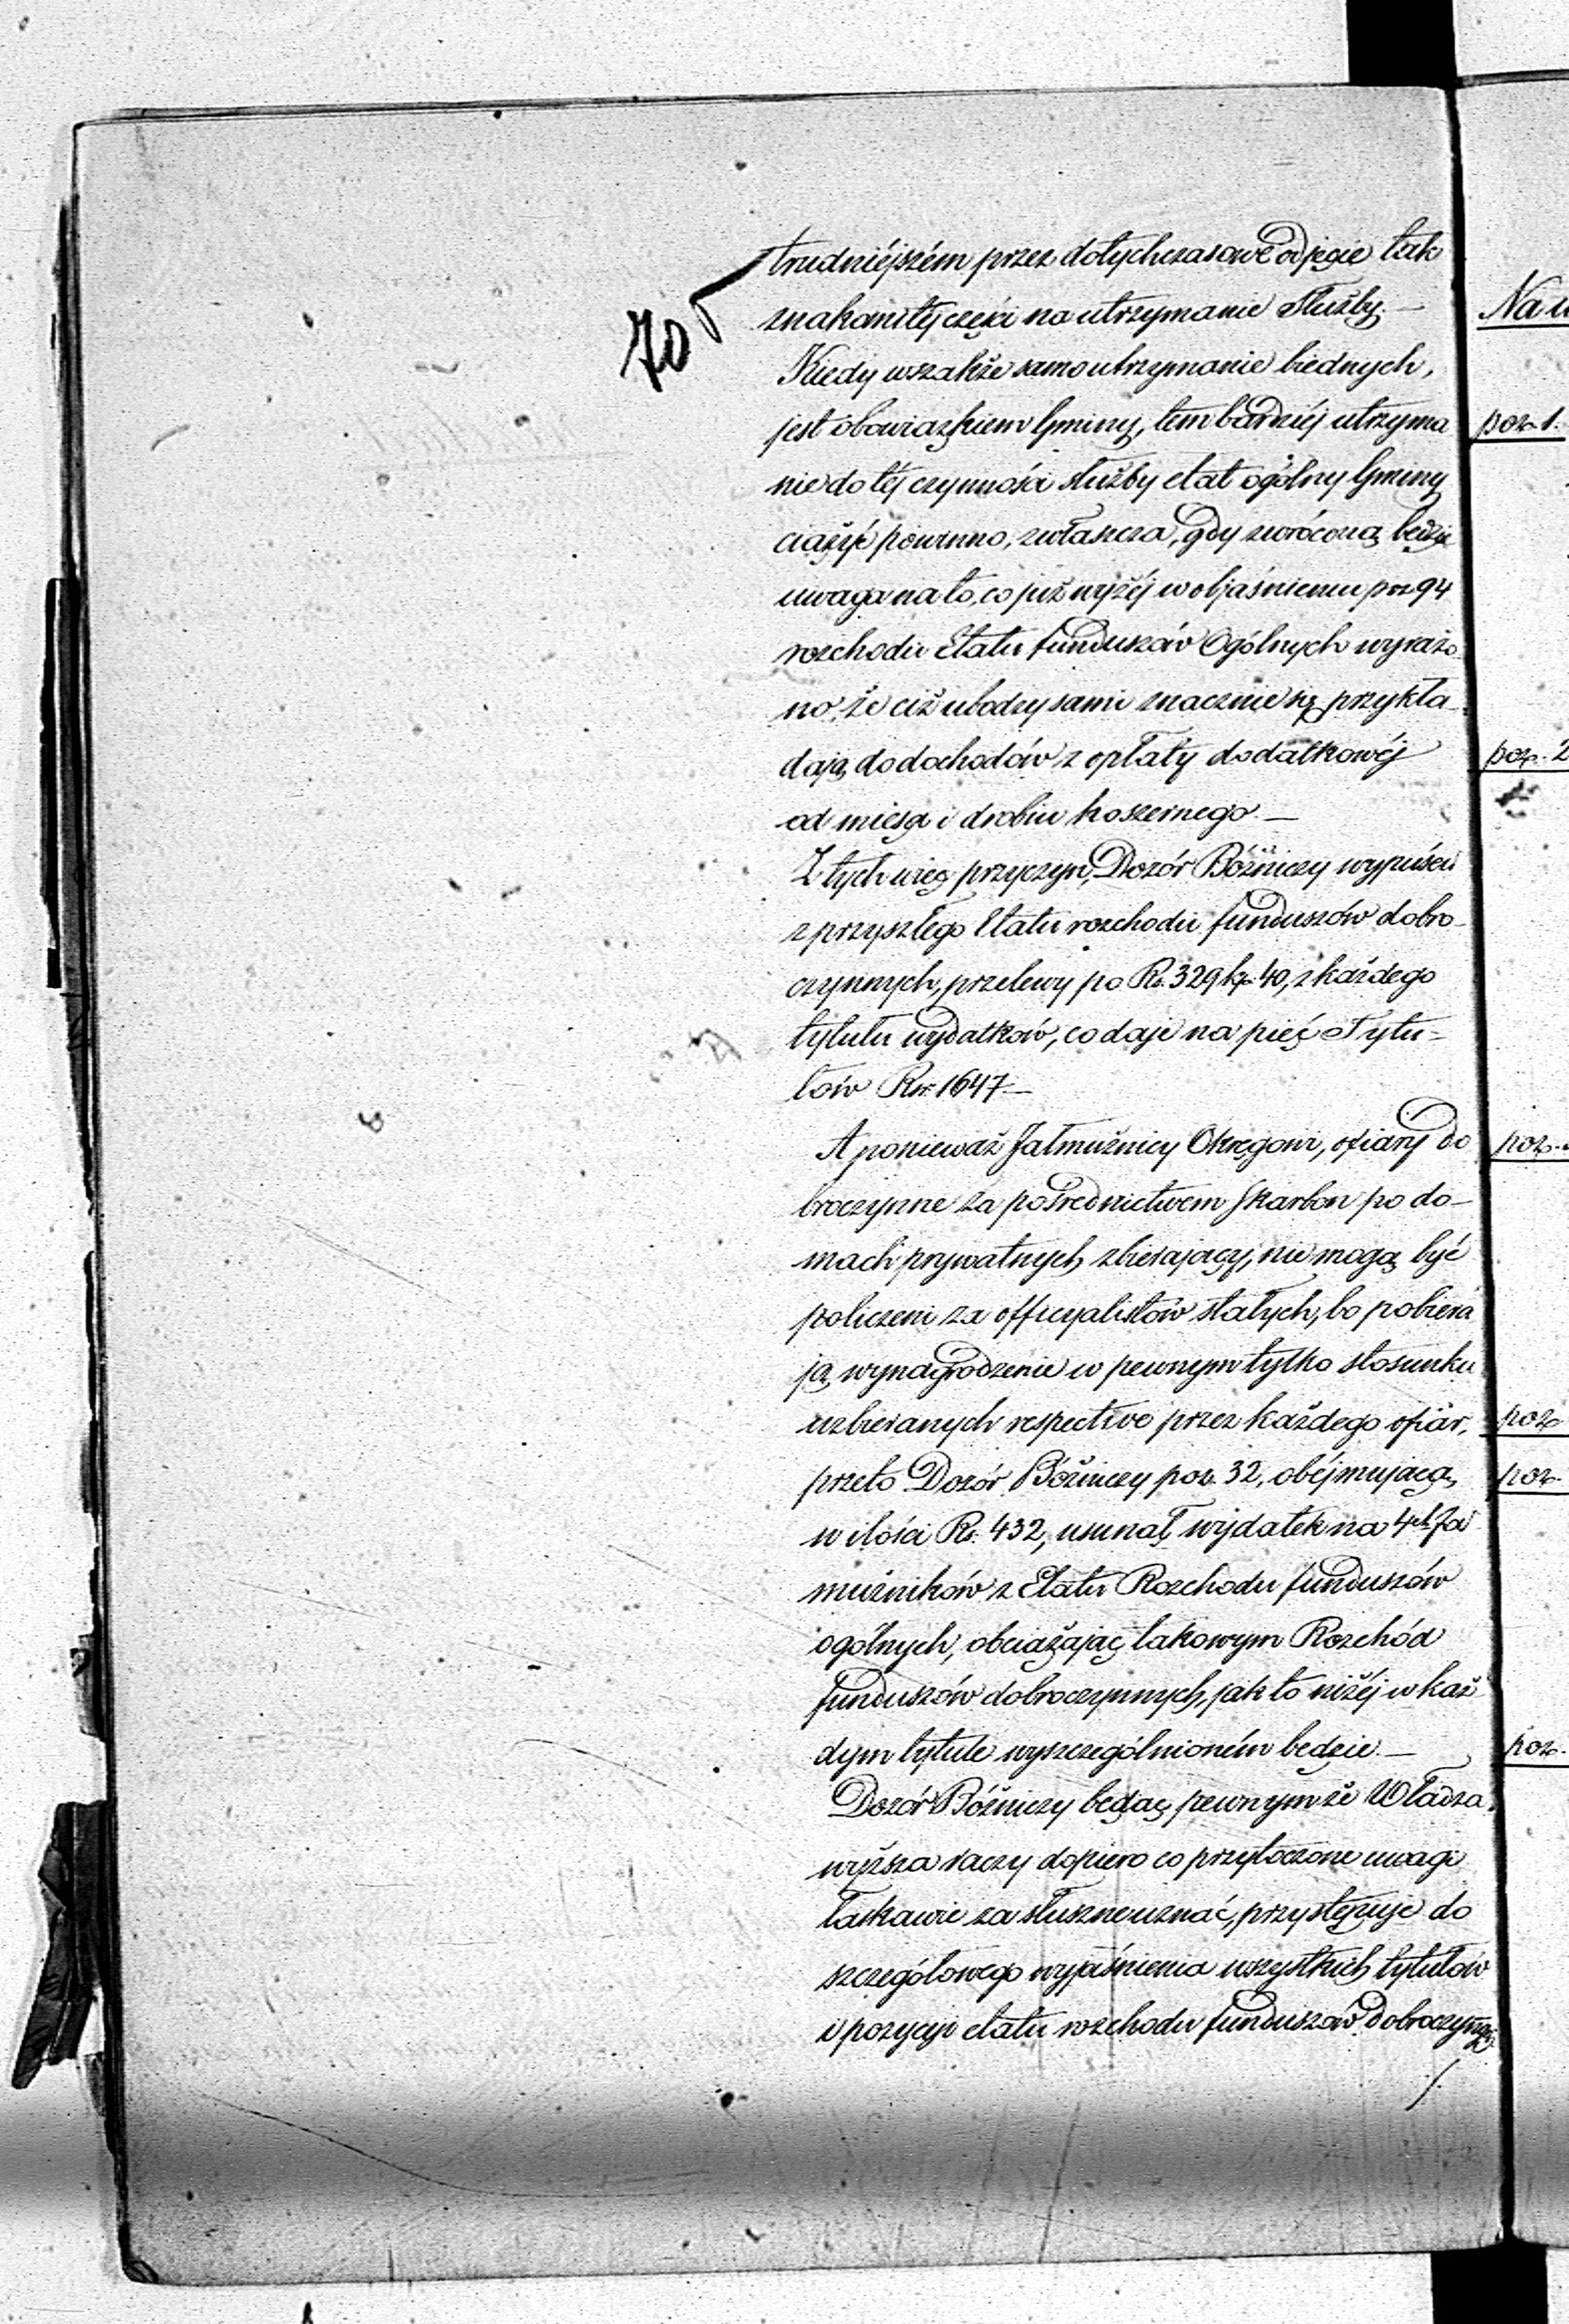 70
trudniéjszém przez dotychczasowe odjęcie tak
znakomitéj części na utrzymanie Służby. —
Kiedy wszakże samo utrzymanie biednych,
jest obowiązkiem Gminy, tem bardziéj utrzyma
nie do téj czynności służby etat ogólny Gminy
ciążyć powinno, zwłaszcza, gdy zwróconą będzie
uwaga na to, co już wyżéj w objaśnieniu poz 94
rozchodu Etatu funduszów Ogólnych wyrażo
no, że ciż ubodzy sami znacznie się przykła
dają do dochodów z opłaty dodatkowéj
od mięsa i drobiu koszernego. —
Z tych więc przyczyn, Dozór Bóżniczy wypuścił
z przyszłego Etatu rozchodu funduszów dobro
czynnych, przelewy po Rs. 329 kp. 40, z każdego
tytułu wydatków, co daje na pięć Tytu=
łów Rsr. 1647 —
A ponieważ Jałmużnicy Okręgowi, ofiary do
broczynne za pośrednictwem skarbon po do—
mach prywatnych zbierający, nie mogą być
policzeni za officyalistów stałych, bo pobiera
ją wynagrodzenie w pewnym tylko stosunku
uzbieranych respective przez każdego ofiar,
przeto Dozór Bóżniczy poz. 32, obéjmującą,
w ilości Rs. 432, usunął wydatek na 4ch Jał
mużników z Etatu Rozchodu funduszów
ogólnych, obciążając takowym Rozchód
funduszów dobroczynnych, jak to niżéj w każ
dym tytule wyszczególnioném będzie. —
Dozór Bóżniczy będąc pewnym że Władza
wyższa raczy dopiero co przytoczone uwagi
łaskawie za słuszne uznać, przystępuje do
szczegółowego wyjaśnienia wszystkich tytułów
i pozycji etatu rozchodu funduszów dobroczynnych
./.
poz. 1.
poz. 2
poz.
poz
poz.
poz.